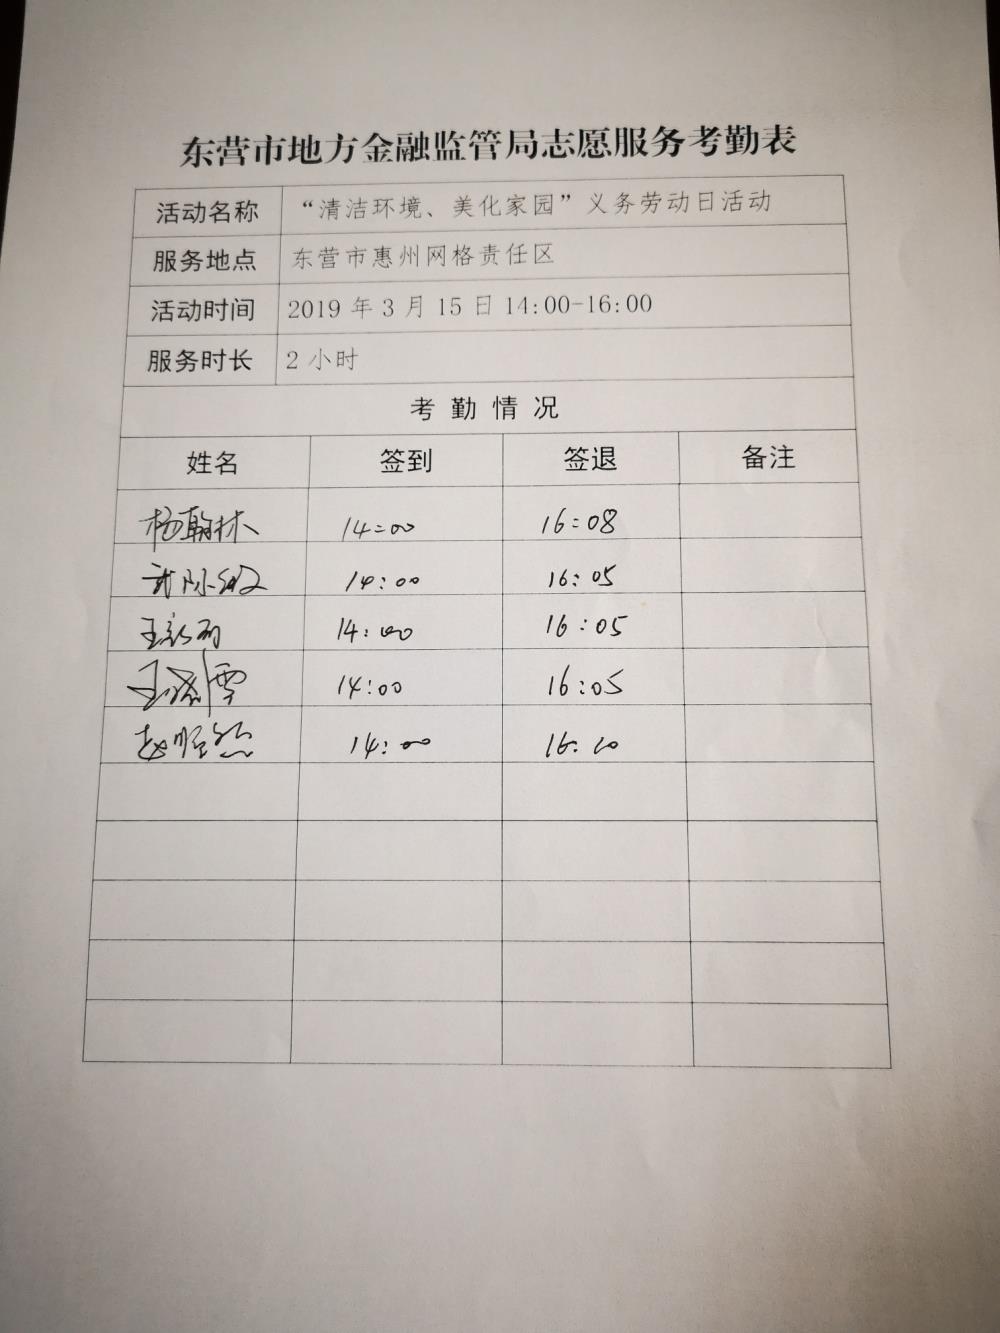 东营市地方金融监管局志愿服务考勤表
活动名称 “清洁环境、美化家园”义务劳动日活动
服务地点 东营市惠州网格责任区
活动时间 2019年3月15日14:00-16:00
服务时长 2小时
考勤情况
姓名 签到 签退 备注
杨翰林 14:00 16:08
14:00 16:05
王 14:00 16:05
王 14:00 16:05
赵 14:00 16:10